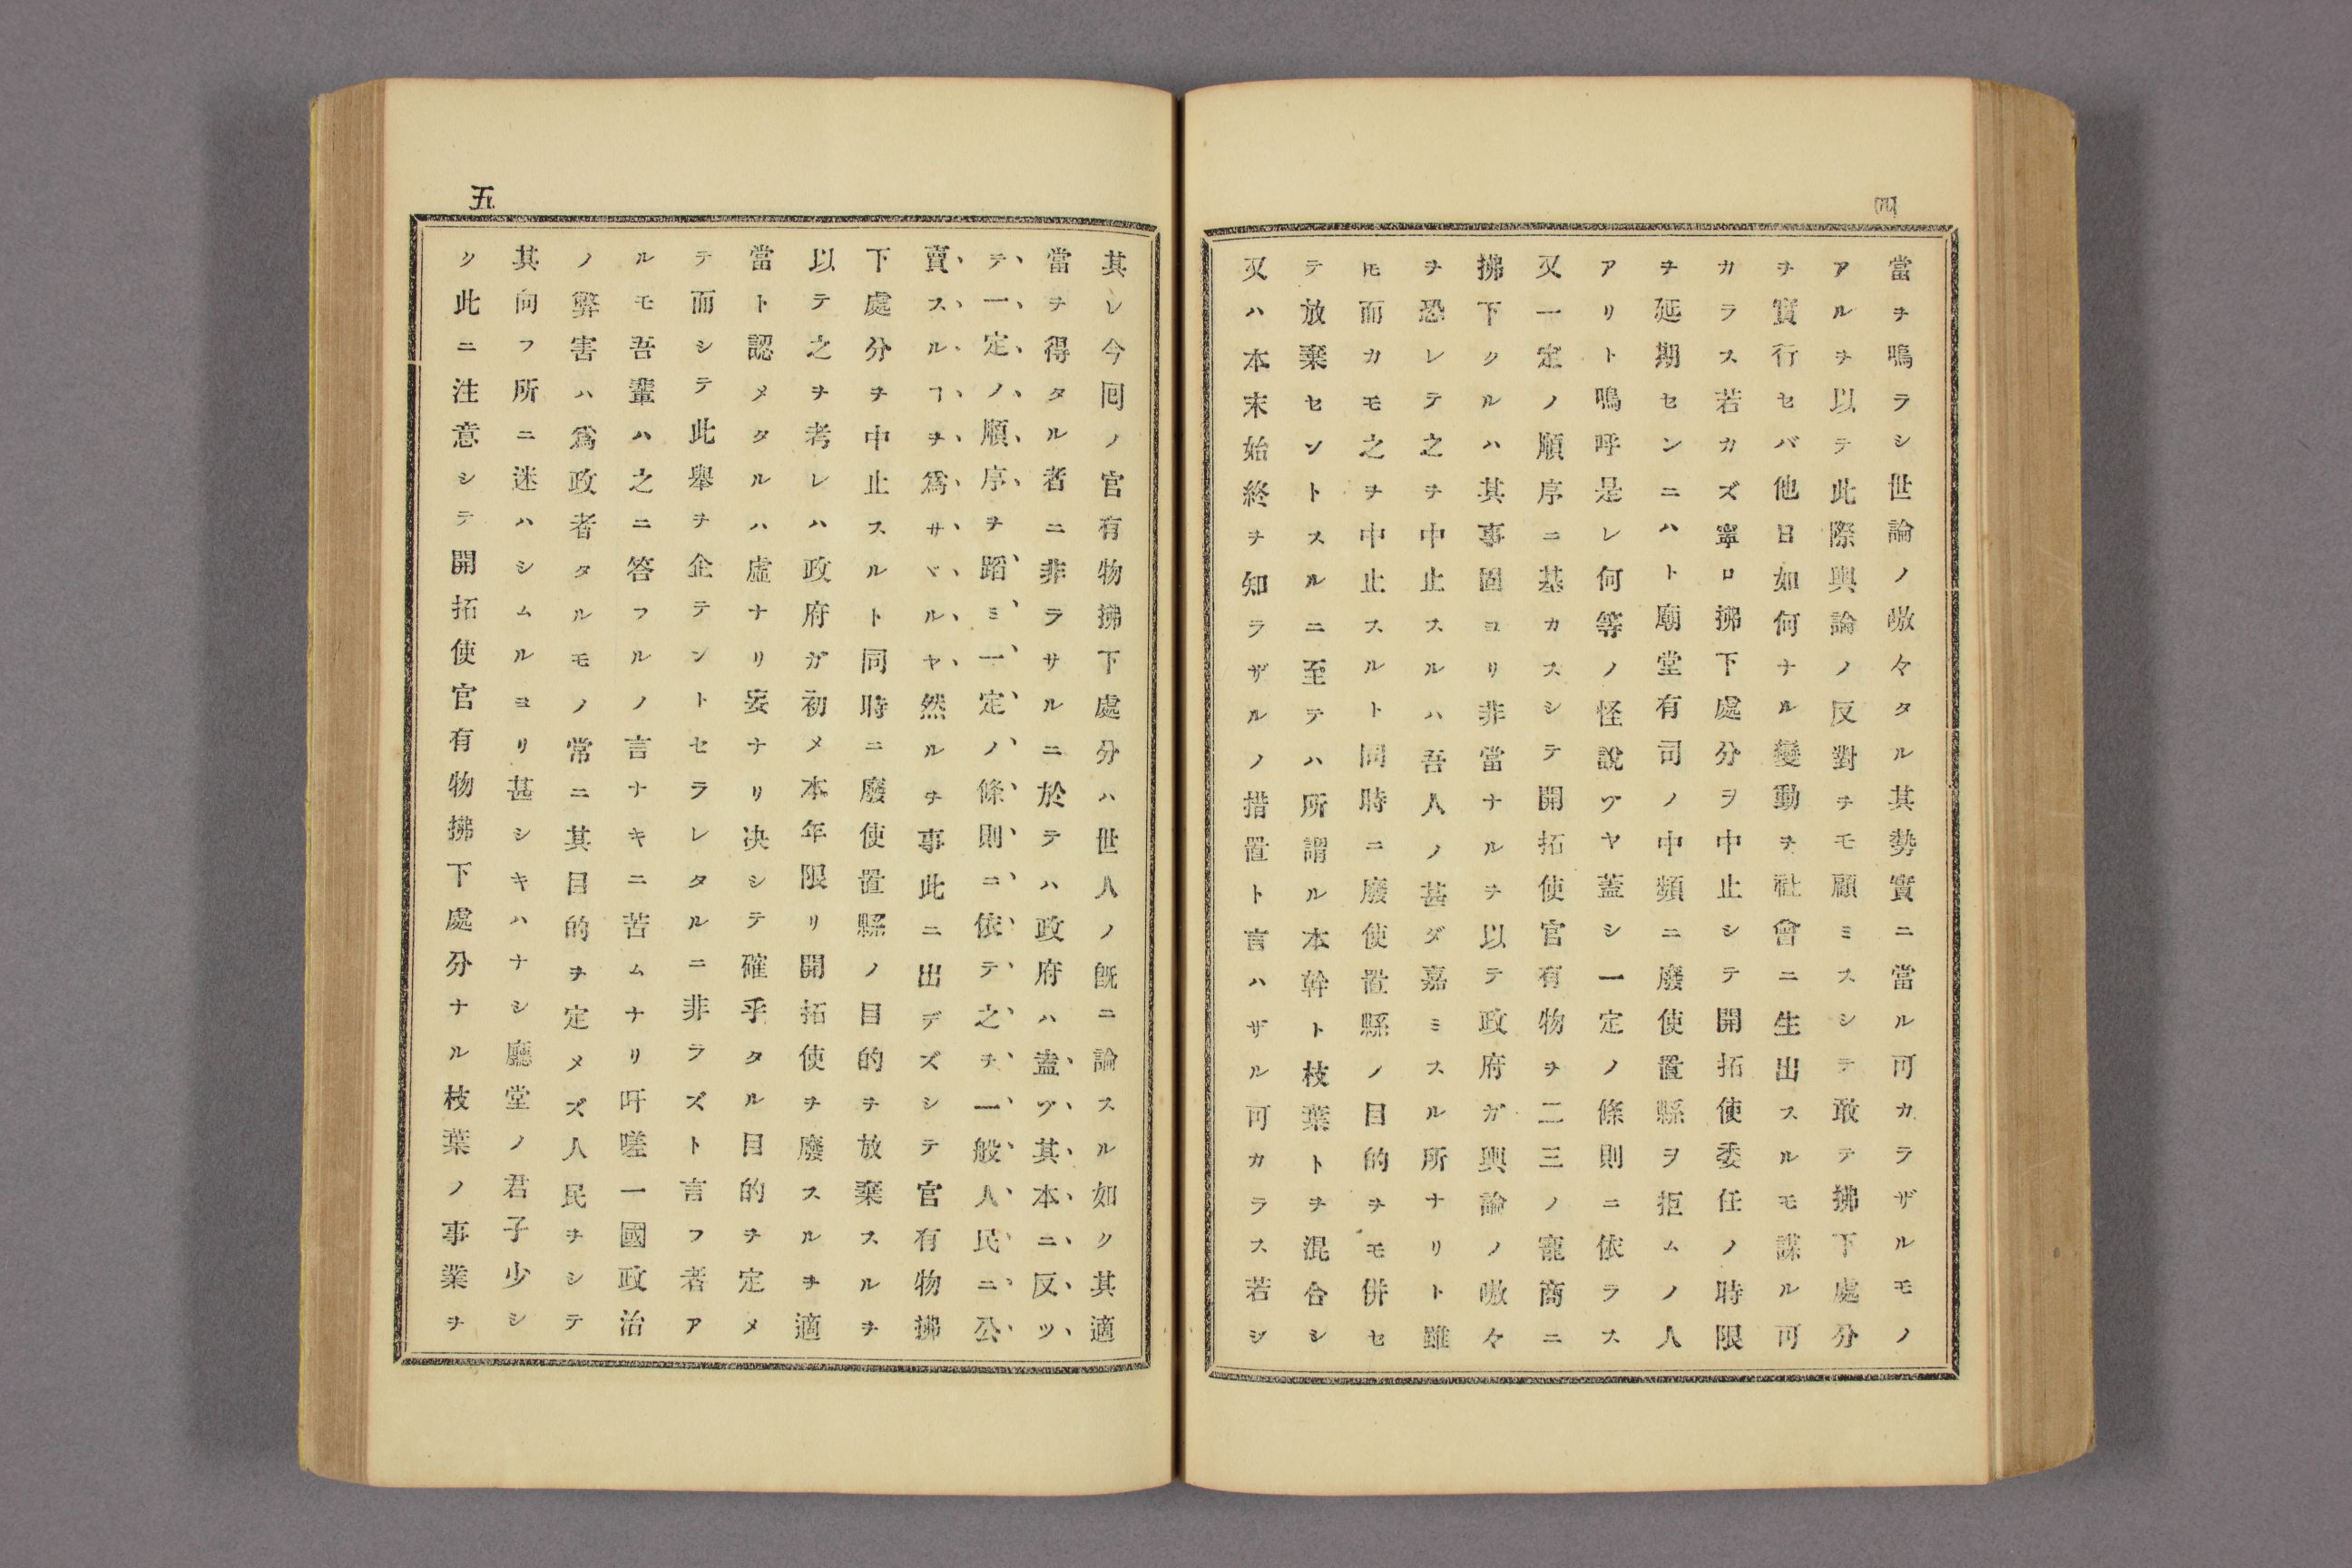 四
當ヲ鳴ラシ世論ノ嗷々タル其勢實ニ當ル可カラザルモノ
アルヲ以テ此際輿論ノ反對ヲモ顧ミスシテ敢テ拂下處分
ヲ實行セバ他日如何ナル變動ヲ社會ニ生出スルモ謀ル可
カラス若カズ寧ロ拂下處分ヲ中止シテ開拓使委任ノ時限
ヲ延期センニハト廟堂有司ノ中頻ニ廢使置縣ヲ拒ムノ人
アリト嗚呼是レ何等ノ怪說ヅヤ蓋シ一定ノ條則ニ依ラス
又一定ノ順序ニ基カスシテ開拓使官有物ヲ二三ノ寵商ニ
拂下クルハ其事固ヨリ非當ナルヲ以テ政府ガ輿論ノ嗷々
ヲ恐レテ之ヲ中止スルハ吾人ノ甚ダ嘉ミスル所ナリト雖
𪜈而カモ之ヲ中止スルト同時ニ廢使置縣ノ目的ヲモ併セ
テ放棄セントスルニ至テハ所謂ル本幹ト枝葉トヲ混合シ
又ハ本末始終ヲ知ラザルノ措置ト言ハザル可カラス若シ
五
其レ今回ノ官有物拂下處分ハ世人ノ旣ニ論スル如ク其適
當ヲ得タル者ニ非ラサルニ於テハ政府ハ盍ヅ其本ニ反ツ
テ一定ノ順序ヲ蹈ミ一定ノ條則ニ依テ之ヲ一般人民ニ公
賣スルヿヲ爲サヾルヤ然ルヲ事此ニ出デズシテ官有物拂
下處分ヲ中止スルト同時ニ廢使置縣ノ目的ヲ放棄スルヲ
以テ之ヲ考レハ政府ガ初メ本年限リ開拓使ヲ廢スルヲ適
當ト認メタルハ虛ナリ妄ナリ决シテ確乎タル目的ヲ定メ
テ而シテ此擧ヲ企テントセラレタルニ非ラズト言フ者ア
ルモ吾輩ハ之ニ答フルノ言ナキニ苦ムナリ吁嗟一國政治
ノ弊害ハ爲政者タルモノノ常ニ其目的ヲ定メズ人民ヲシテ
其向フ所ニ迷ハシムルヨリ甚シキハナシ廳堂ノ君子少シ
ク此ニ注意シテ開拓使官有物拂下處分ナル枝葉ノ事業ヲ